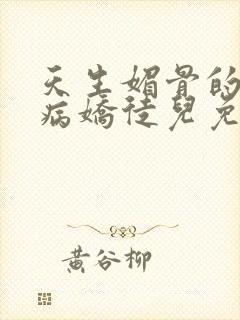 天生媚骨的
病嬌徒兒免
黃谷柳